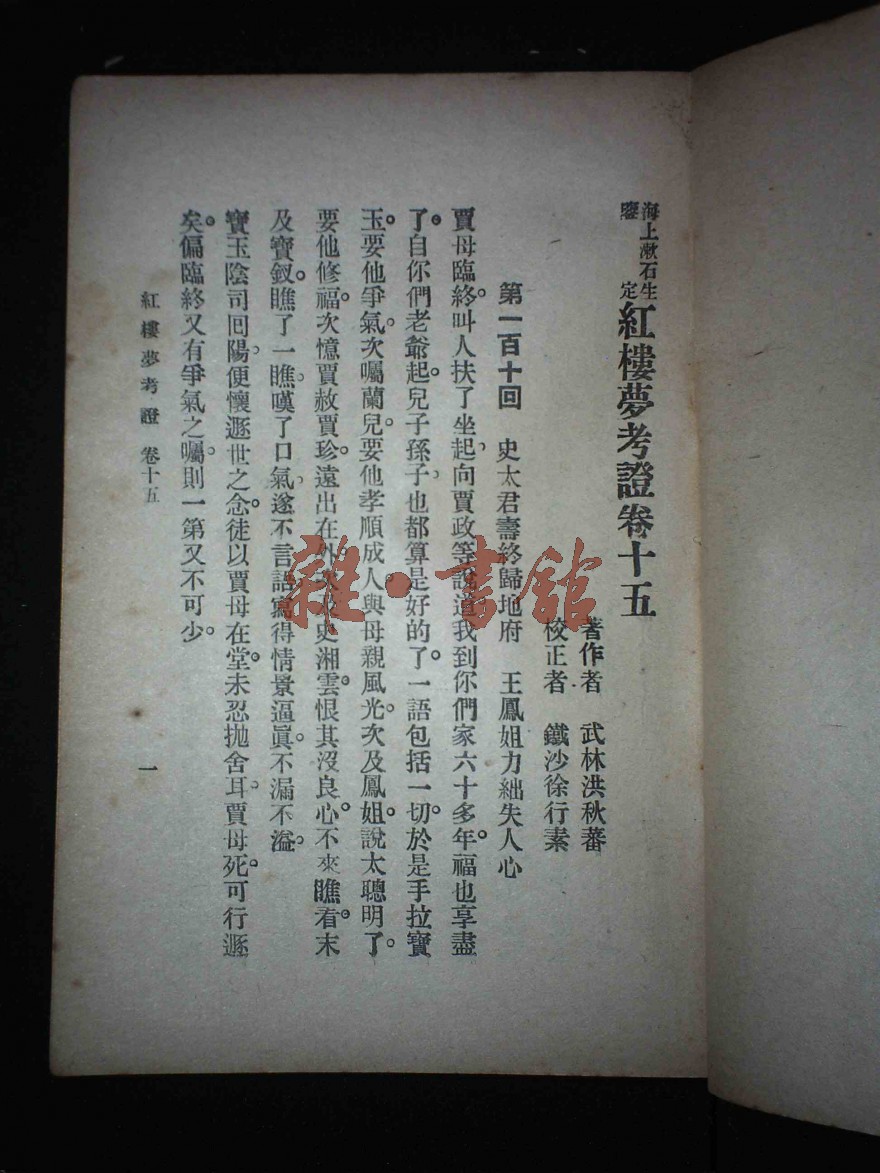 海上漱石生鑒定
紅樓夢考證卷十五
著作者 武林洪秋蕃
校正者 鐵沙徐行素
第一百十回 史太君壽終歸地府 王鳳姐力絀失人心
賈母臨終。叫人扶了坐起。向賈政等說道。我到你們家六十多年。福也享盡
了。自你們老爺起。兒子孫子。也都算是好的了。一語包括一切。於是手拉寶
玉。要他爭氣。次囑蘭兒。要他孝順成人。與母親風光。次及鳳姐。說太聰明了。
要他修福。次憶賈赦賈珍。遠出在外。次及史湘雲。恨其沒良心。不來瞧看。末
及寶釵。瞧了一瞧。嘆了口氣。遂不言語。寫得情景逼眞。不漏不溢。
寶玉陰司回陽。便懷遯世之念。徒以賈母在堂。未忍抛舍耳。賈母死。可行遯
矣。偏臨終又有爭氣之囑。則一第又不可少。
紅樓夢考證 卷十五
一
雜·書館